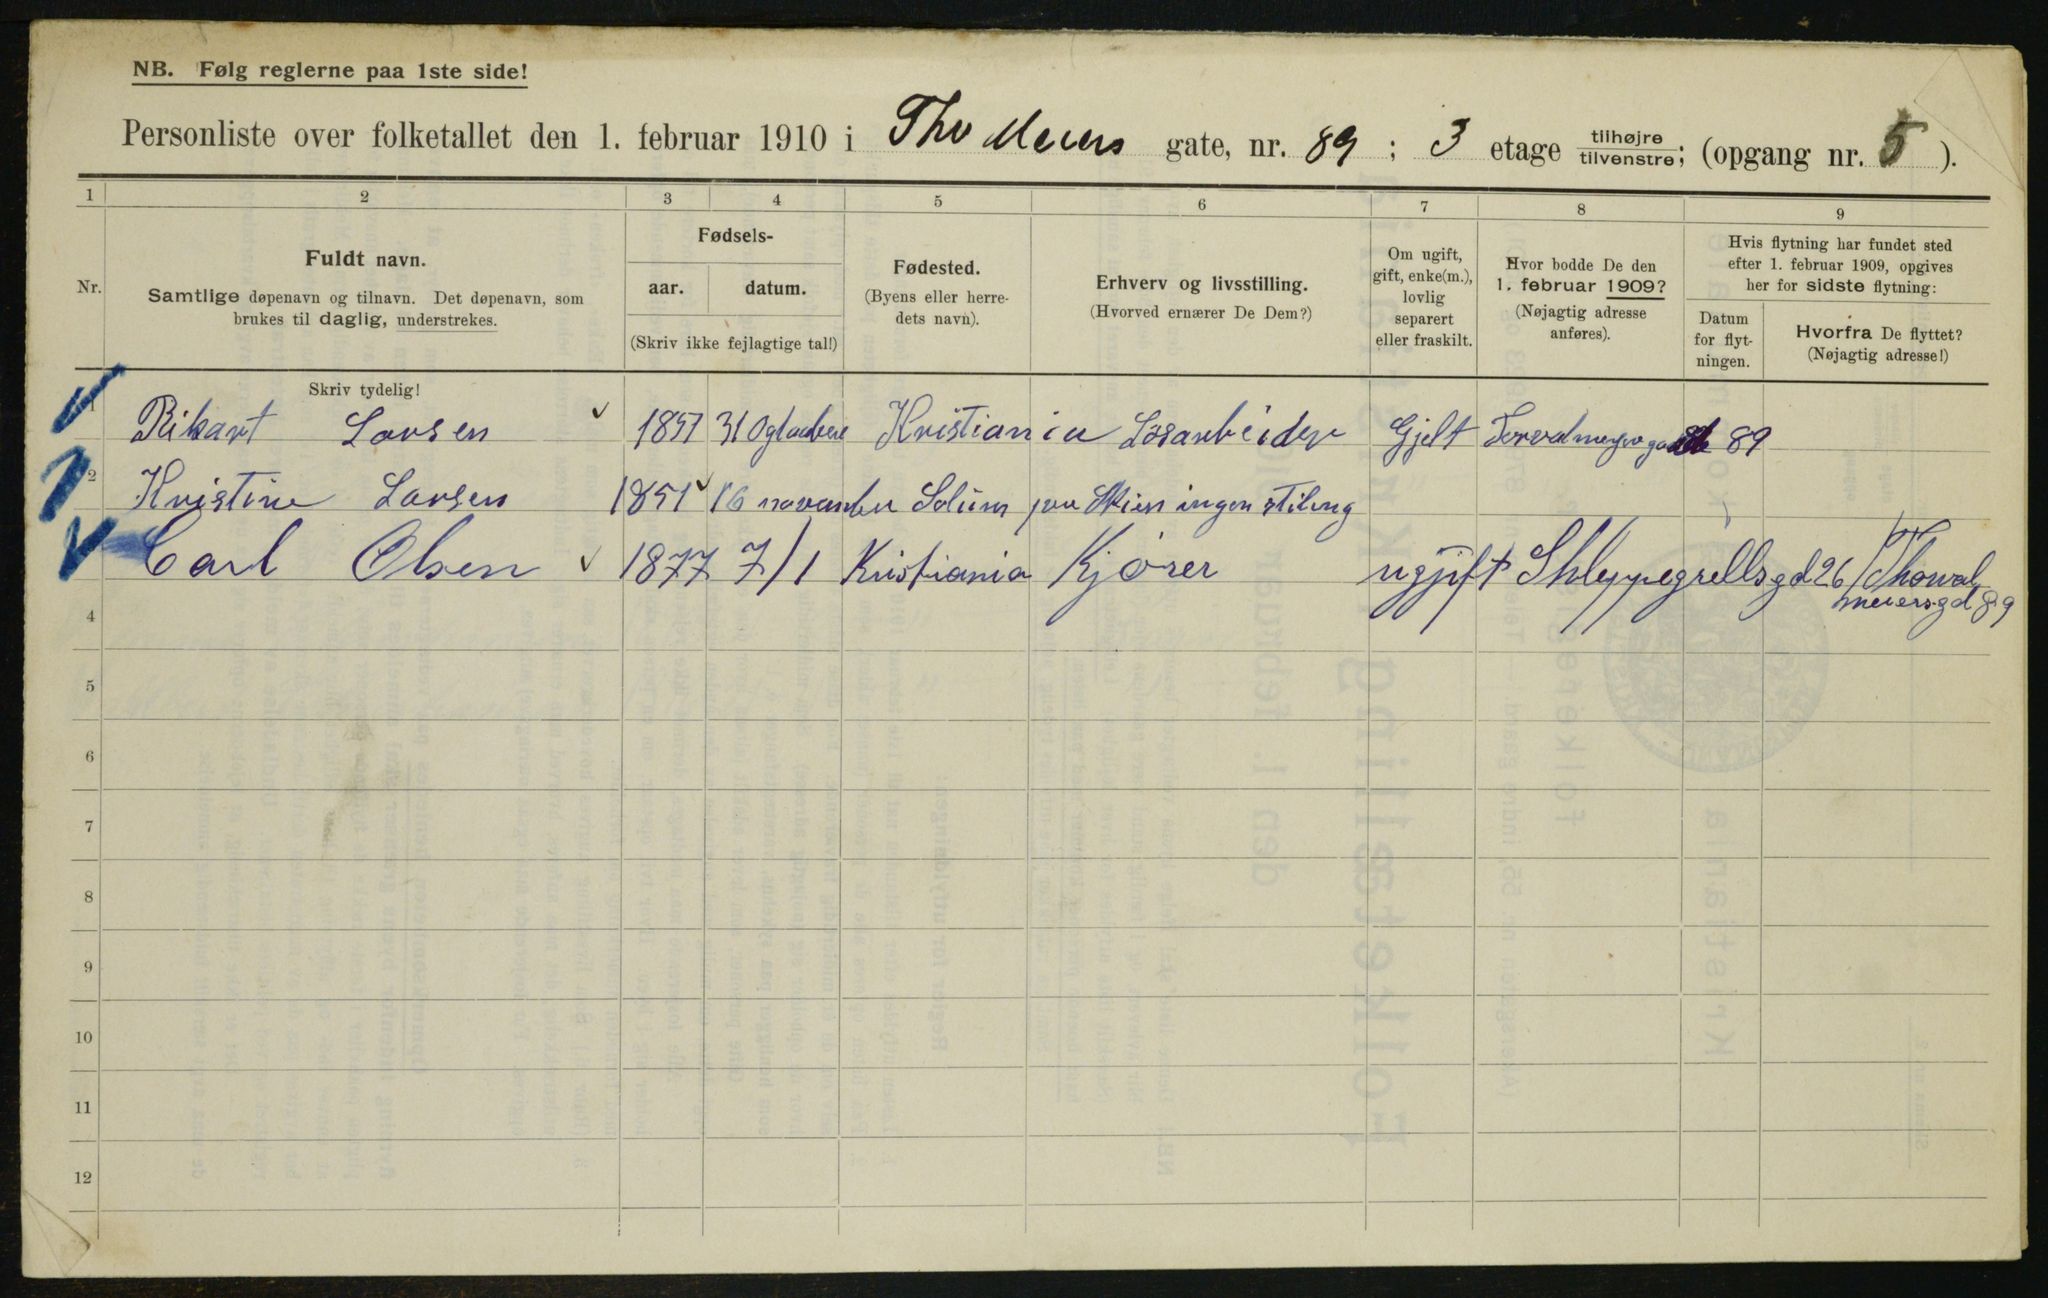 NB. Følg reglerne paa 1ste side!
Personliste over folketallet den 1. februar 1910 i Thv Meiers gate, nr. 89 ; 3 etage tilhøjre / tilvenstre; (opgang nr. 5 ).
1 2 3 4 5 6 7 8 9
Nr.
Fuldt navn.
Samtlige døpenavn og tilnavn. Det døpenavn, som
brukes til daglig, understrekes.
Skriv tydelig!
Fødsels-
aar. datum.
(Skriv ikke fejlagtige tal!)
Fødested.
(Byens eller herre-
dets navn).
Erhverv og livsstilling.
(Hvorved ernærer De Dem?)
Om ugift,
gift, enke(m.),
lovlig
separert
eller fraskilt.
Hvor bodde De den
1. februar 1909?
(Nøjagtig adresse
anføres).
Hvis flytning har fundet sted
efter 1. februar 1909, opgives
her for sidste flytning:
Datum
for flyt-
ningen.
Hvorfra De flyttet?
(Nøjagtig adresse!)
1 Rikart Larsen 1857 31 Kristiania Lösarbeider Gjelt 89
2 Kristine Larsen 1851 16 november Solum paa Skien ingen stilling
Carl Olsen 1877 7/1 Kristiania Kjører ugift Shleppegrellsgd 26 / Thorval
meiersgd 89
4
5
6
7
8
9
10
11
12